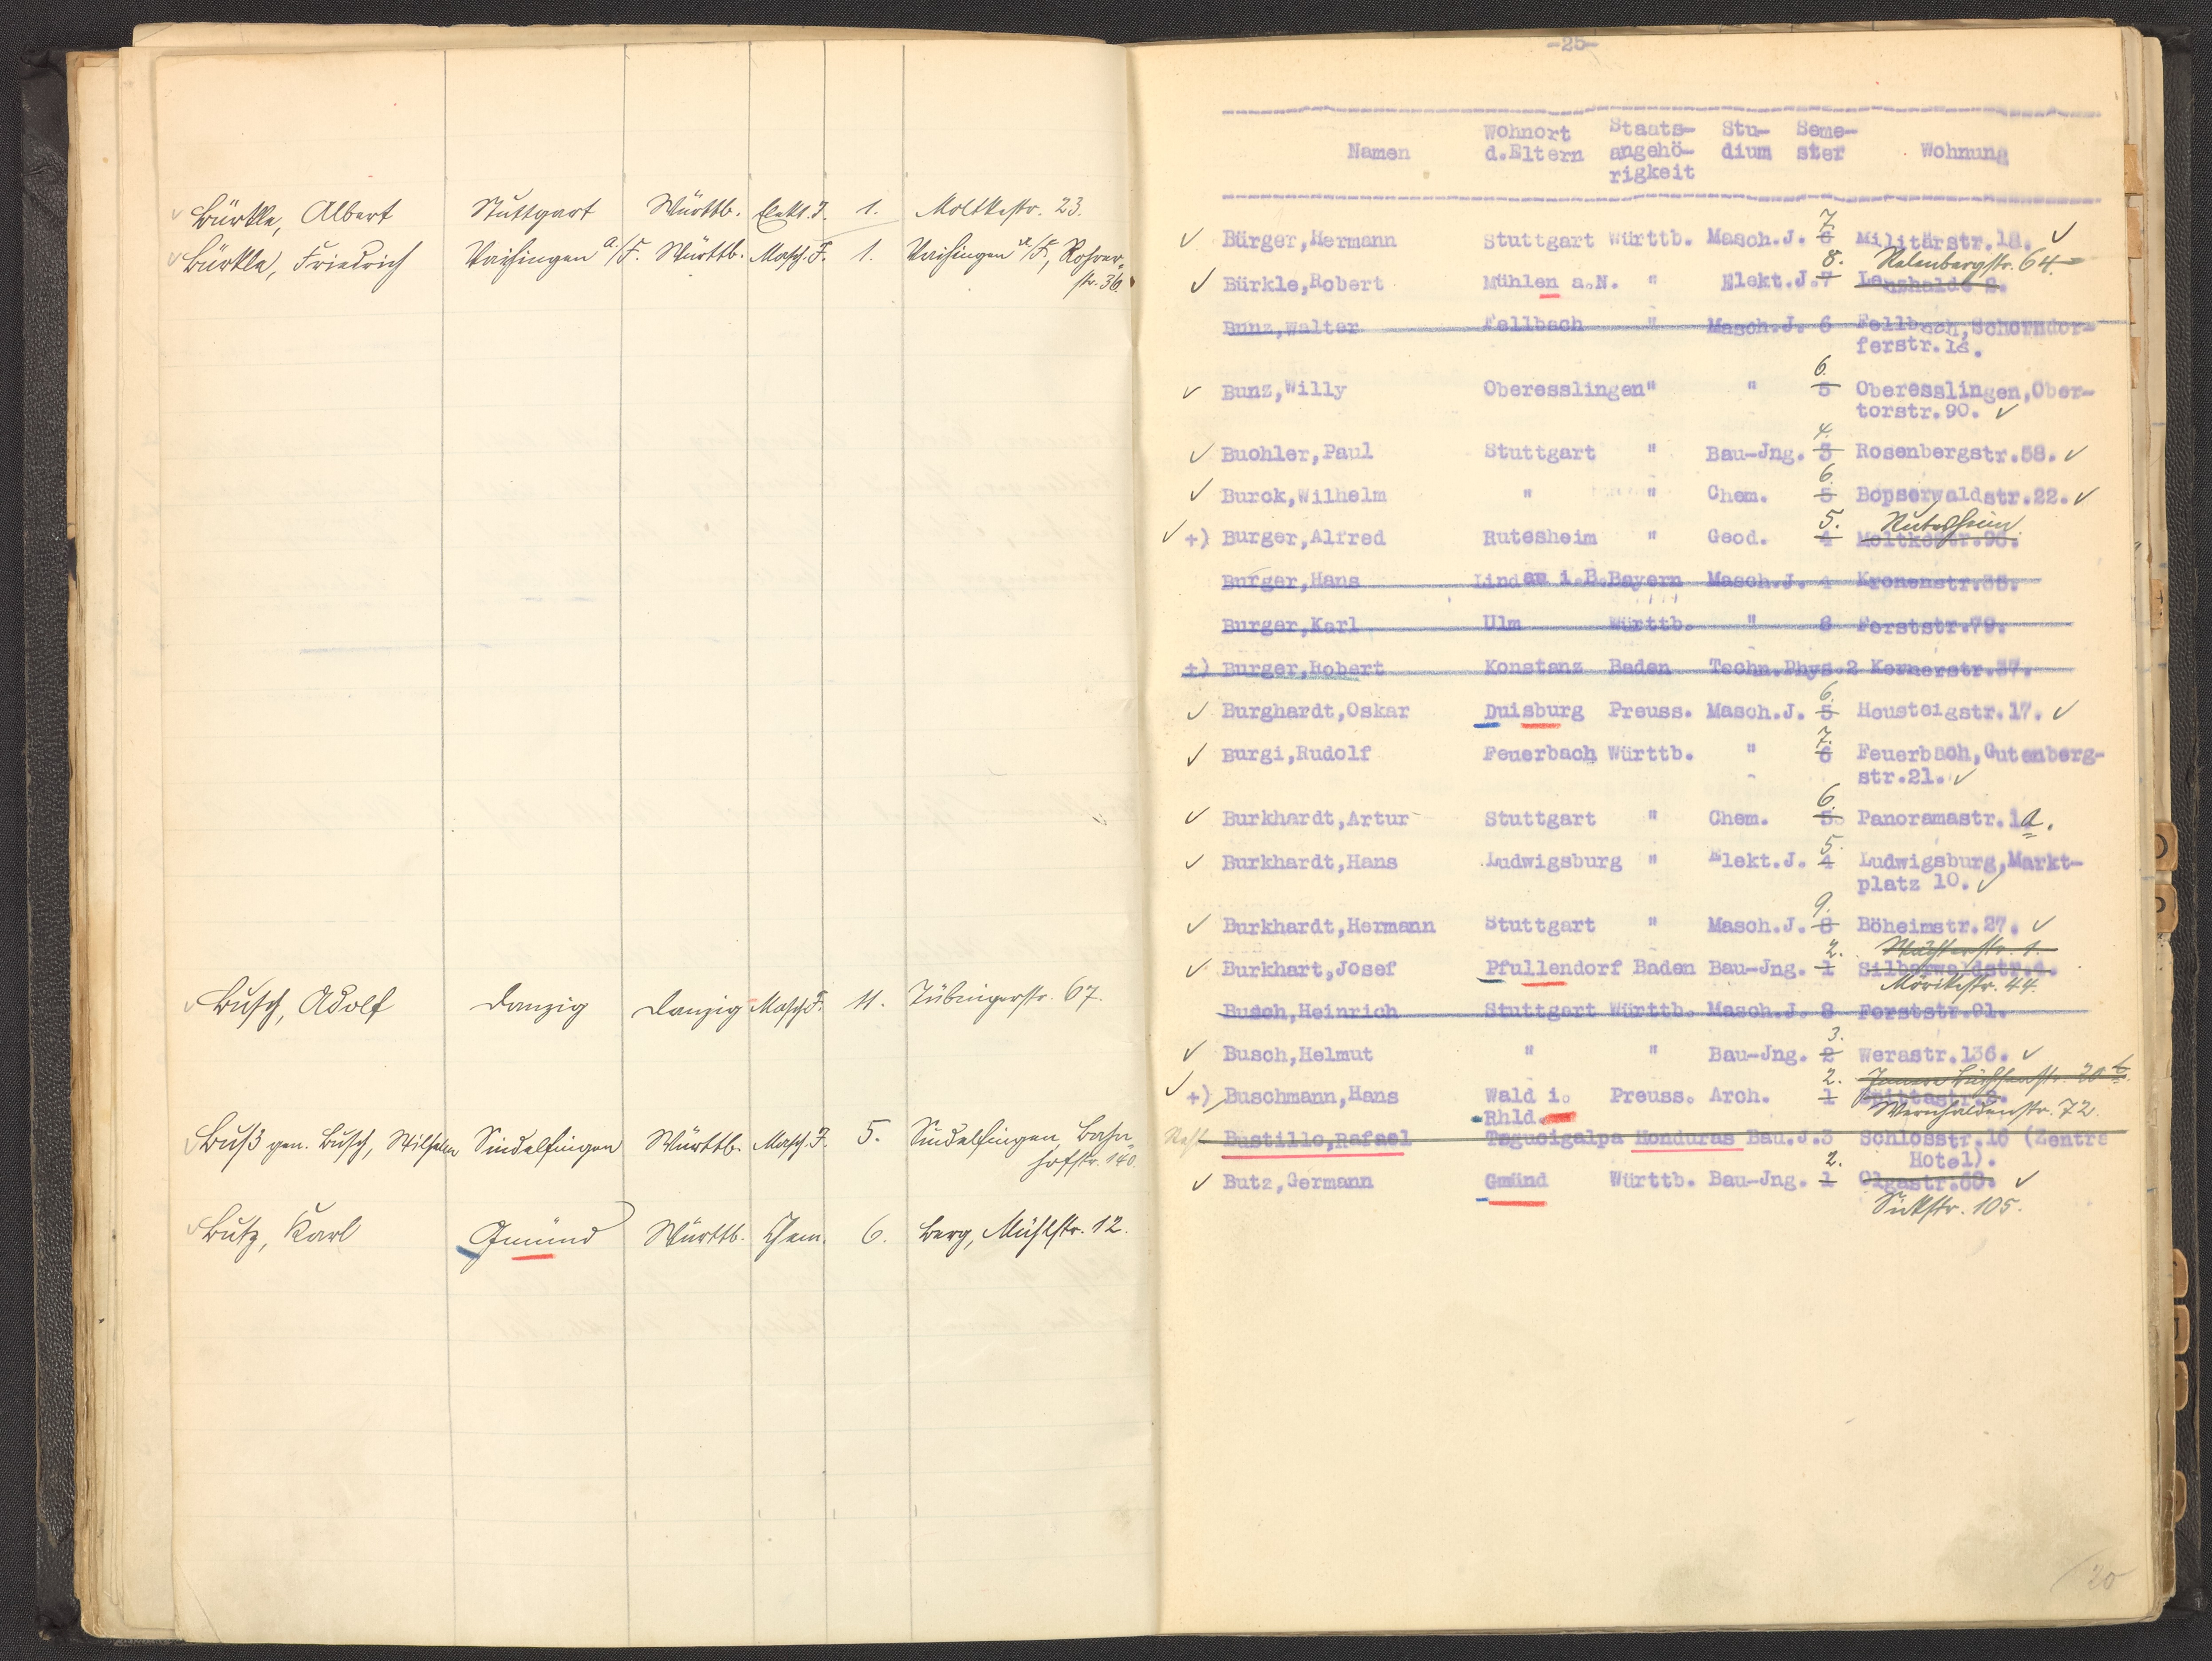 Bürkle, Albert Stuttgart Württb. Elekt. J. 1. Moltkestr. 23.
Bürkle, Friedrich Vaihingen a./F. Württb. Masch. J. 1. Vaihingen a/F., Rohrer-
str. 36.
Busch, Adolf Danzig Danzig Masch. J. 11. Tübingerstr. 67.
Buß gen. Busch, Wilhelm Sindelfingen Württb. Masch. J. 5. Sindelfingen, Bahn-
hofstr. 140.
Butz, Karl Gmünd Württb. Chem. 6. Berg, Mühlstr. 12.
-25-
Wohnort Staats- Stu- Seme-
Namen d.Eltern angehö- dium ster Wohnung
rigkeit
7.
Bürger,Hermann Stuttgart Württb. Masch.J. 6 Militärstr.18.
8. Relenbergstr. 64.
Bürkle,Robert Mühlen a.N. " Elekt.J.7 Lenzhalde 2.
Bunz,Walter Fellbach " Masch.J. 6 Fellbach,Schorndor-
ferstr.18.
6.
Bunz,Willy Oberesslingen" " 5 Oberesslingen,Ober-
torstr.90.
4.
Buohler,Paul Stuttgart " Bau-Jng. 3 Rosenbergstr.58.
6.
Burck,Wilhelm " " Chem. 5 Bopserwaldstr.22.
5. Rutesheim
+) Burger,Alfred Rutesheim " Geod. 4 Moltkestr.96.
Burger,Hans Lindau i.B.Bayern Masch.J. 1 Kronenstr.35.
Burger,Karl Ulm Württb. " 8 Forststr.79.
+) Burger,Robert Konstanz Baden Techn.Phys.2 Kernerstr.37.
6.
Burghardt,Oskar Duisburg Preuss. Masch.J. 5 Heusteigstr.17.
7.
Burgi,Rudolf Feuerbach Württb. " 6 Feuerbach,Gutenberg-
str.21.
6.
Burkhardt,Artur Stuttgart " Chem. 5 Panoramastr.1a.
5.
Burkhardt,Hans Ludwigsburg " Elekt.J. 4 Ludwigsburg,Markt-
platz 10.
9.
Burkhardt,Hermann Stuttgart " Masch.J. 8 Böheimstr.27.
2. Wächterstr. 1.
Burkhart,Josef Pfullendorf Baden Bau-Jng. 1 Silberwaldstr.4.
Mörikestr. 44.
Busch,Heinrich Stuttgart Württb. Masch.J. 8 Forststr.91.
3.
Busch,Helmut " " Bau-Jng. 2 Werastr.136.
2. Innere Büchsenstr. 20
+) Buschmann,Hans Wald i. Preuss. Arch. 1 Spittastr.2.
Rhld. Wernhaldenstr. 72.
Bustillo,Rafael Tegucigalpa Honduras Bau.J.3 Schlosstr.16 (Zentra
Hotel).
2.
Butz,Germann Gmünd Württb. Bau-Jng. 1 Olgastr.60.
Sickstr. 105.
20